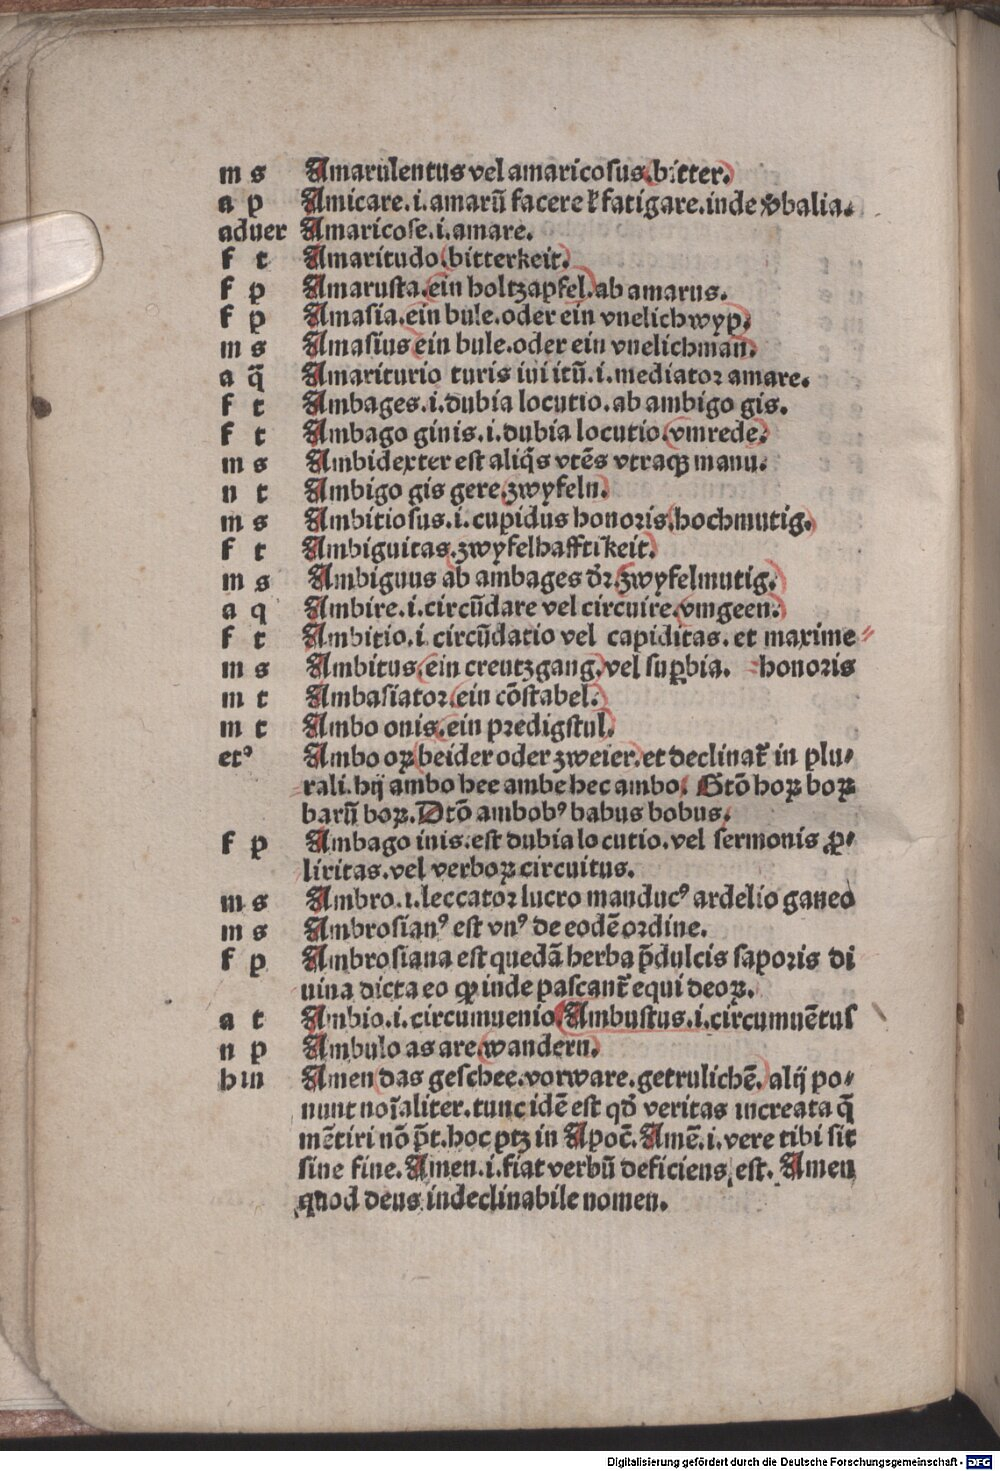 m s Amarulentus vel amaricosus. bitter.
a p Amicare .i. amarū facere ł fatigare. inde ꝟbalia.
aduer Amaricose .i. amare.
f t Amaritudo. bitterkeit.
f p Amarusta. ein holtzapfel. ab amarus.
f p Amasia. ein bule. oder ein vnelich wyp.
m s Amasius ein bule. oder ein vnelich man.
a q̄ Amariturio turis iui itū .i. mediator amare.
f t Ambages .i. dubia locutio. ab ambigo gis.
f t Ambago ginis .i. dubia locutio. vmrede.
m s Ambidexter est aliq̄s vtēs vtraqꝫ manu.
n t Ambigo gis gere. zwyfeln.
m s Ambitiosus .i. cupidus honoris. hochmutig.
f t Ambiguitas. zwyfelhafftikeit.
m s Ambiguus ab ambages dr̄. zwyfelmutig.
a q Ambire .i. circūdare vel circuire. vmgeen.
f t Ambitio .i. circūdatio vel capiditas. et maxime
m s Ambitus. ein creutzgang. vel suꝑbia. honoris
m t Ambasiator. ein cōstabel.
m t Ambo onis. ein predigstul.
etꝰ Ambo oꝝ beider oder zweier. et declinat̄ in plu-
rali. hij ambo hee ambe hec ambo. Gtō hoꝝ boꝝ
barū boꝝ. Dtō ambobꝰ babus bobus.
f p Ambago inis. est dubia lo cutio. vel sermonis ꝓ-
liritas. vel verboꝝ circuitus.
m s Ambro .i. leccator lucro manducꝰ ardelio ganeo
m s Ambrosianꝰ est vnꝰ de eodē ordine.
f p Ambrosiana est quedā herba p̄dulcis saporis di
uina dicta eo ꝙ inde pascant̄ equi deoꝝ.
a t Ambio .i. circumuenio. Ambustus .i. circumuētus
n p Ambulo as are. wandern.
hin Amen das geschee. vorware. getrulichē. alij po-
nunt noīaliter. tunc idē est qđ veritas increata q̄
mētiri nō p̄t. hoc ptꝫ in Apoc̄. Amē .i. vere tibi sit
sine fine. Amen .i. fiat verbū deficiens est. Amen
quod deus indeclinabile nomen.
Digitalisierung gefördert durch die Deutsche Forschungsgemeinschaft - DFG